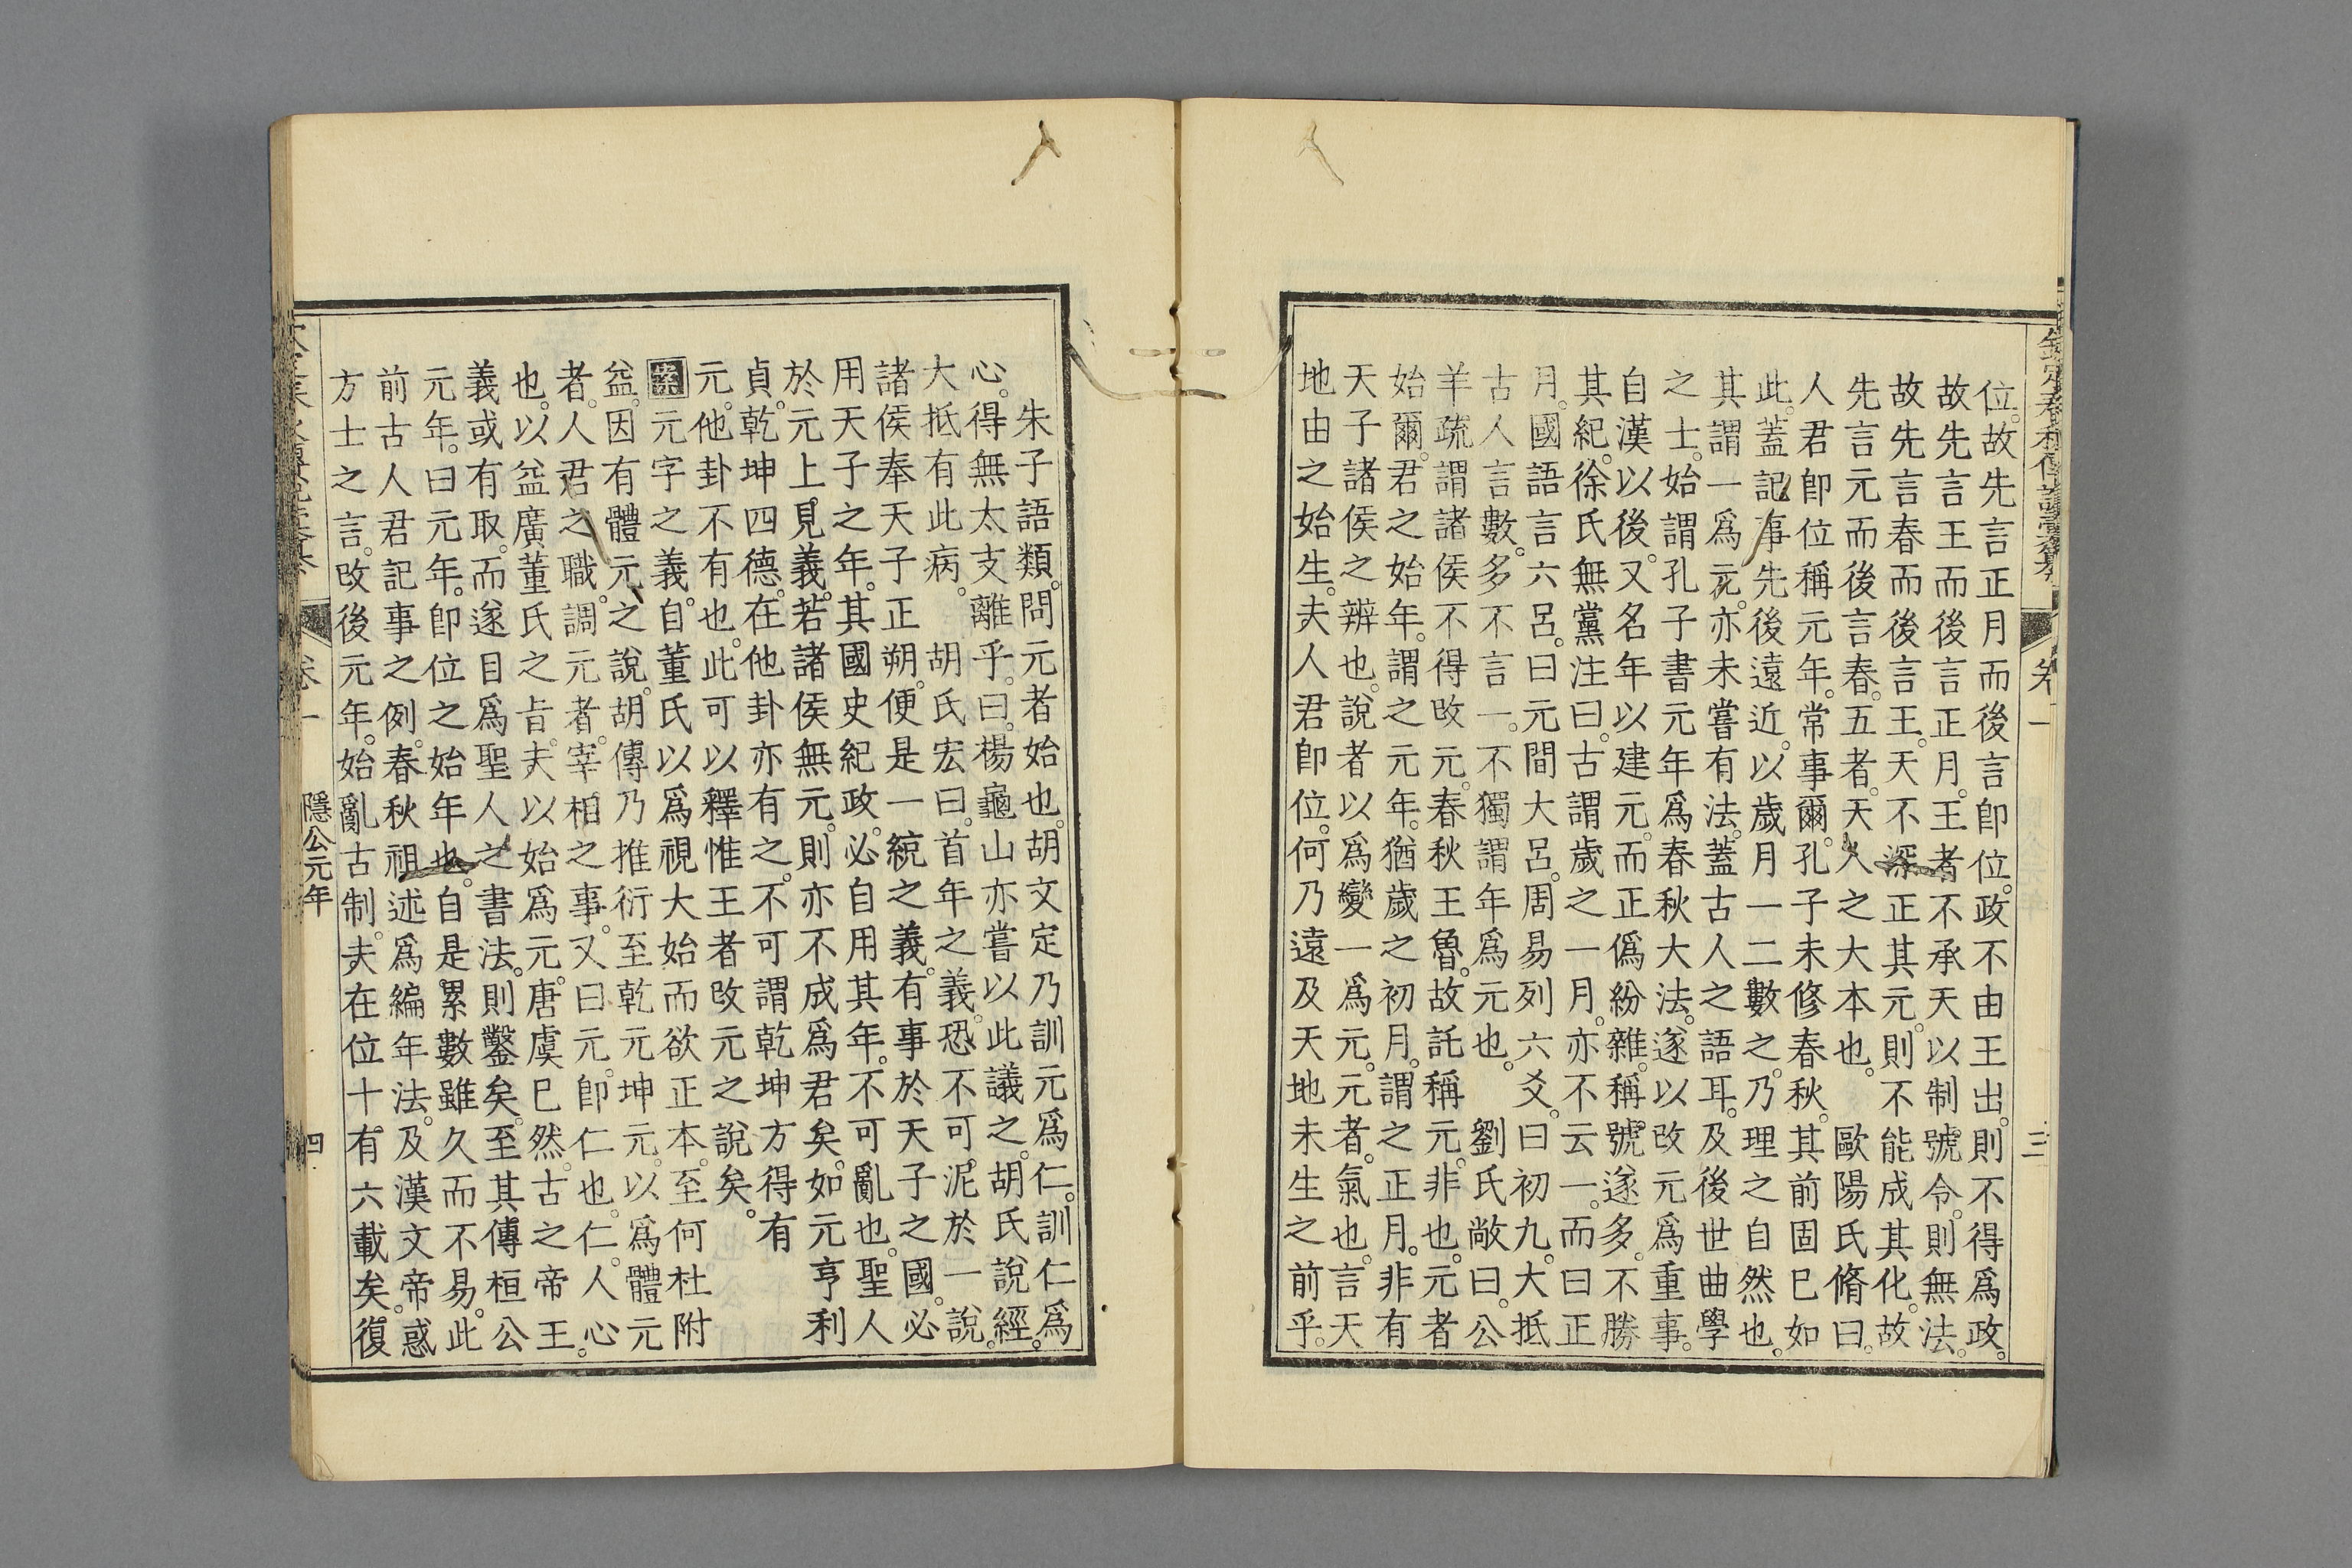 欽定春秋傳說彙纂
卷一
三
位。故先言正月而後言卽位。政不由王出。則不得爲政。
故先言王而後言正月。王者不承天以制號令。則無法。
故先言春而後言王。天不深正其元。則不能成其化。故
先言元而後言春。五者。天人之大本也。 歐陽氏脩曰。
人君卽位稱元年。常事爾。孔子未修春秋。其前固已如
此。蓋記事先後遠近。以歲月一二數之。乃理之自然也。
其謂一爲元。亦未嘗有法。蓋古人之語耳。及後世曲學
之士。始謂孔子書元年爲春秋大法。遂以改元爲重事。
自漢以後。又名年以建元。而正僞紛雜。稱號遂多。不勝
其紀。徐氏無黨注曰。古謂歲之一月。亦不云一。而曰正
月。國語言六呂。曰元間大呂。周易列六爻。曰初九。大抵
古人言數。多不言一。不獨謂年爲元也。 劉氏敞曰。公
羊疏謂諸侯不得改元。春秋王魯。故託稱元。非也。元者
始爾。君之始年。謂之元年。猶歲之初月。謂之正月。非有
天子諸侯之辨也。說者以爲變一爲元。元者。氣也。言天
地由之始生。夫人君卽位。何乃遠及天地未生之前乎。
朱子語類。問元者始也。胡文定乃訓元爲仁。訓仁爲
心。得無太支離乎。曰。楊龜山亦嘗以此議之。胡氏說經。
大抵有此病。 胡氏宏曰。首年之義。恐不可泥於一說。
諸侯奉天子正朔。便是一統之義。有事於天子之國。必
用天子之年。其國史紀政。必自用其年。不可亂也。聖人
於元上見義。若諸侯無元。則亦不成爲君矣。如元亨利
貞。乾坤四德。在他卦亦有之。不可謂乾坤方得有
元。他卦不有也。此可以釋惟王者改元之說矣。
案元字之義。自董氏以爲視大始而欲正本。至何杜附
益。因有體元之說。胡傳乃推衍至乾元坤元。以爲體元
者。人君之職。調元者。宰相之事。又曰元。卽仁也。仁。人心
也。以益廣董氏之旨。夫以始爲元。唐虞已然。古之帝王。
義或有取。而遂目爲聖人之書法。則鑿矣。至其傳桓公
元年。曰元年。卽位之始年也。自是累數雖久而不易。此
前古人君記事之例。春秋祖述爲編年法。及漢文帝惑
方士之言。改後元年。始亂古制。夫在位十有六載矣。復
卷一
隱公元年
四